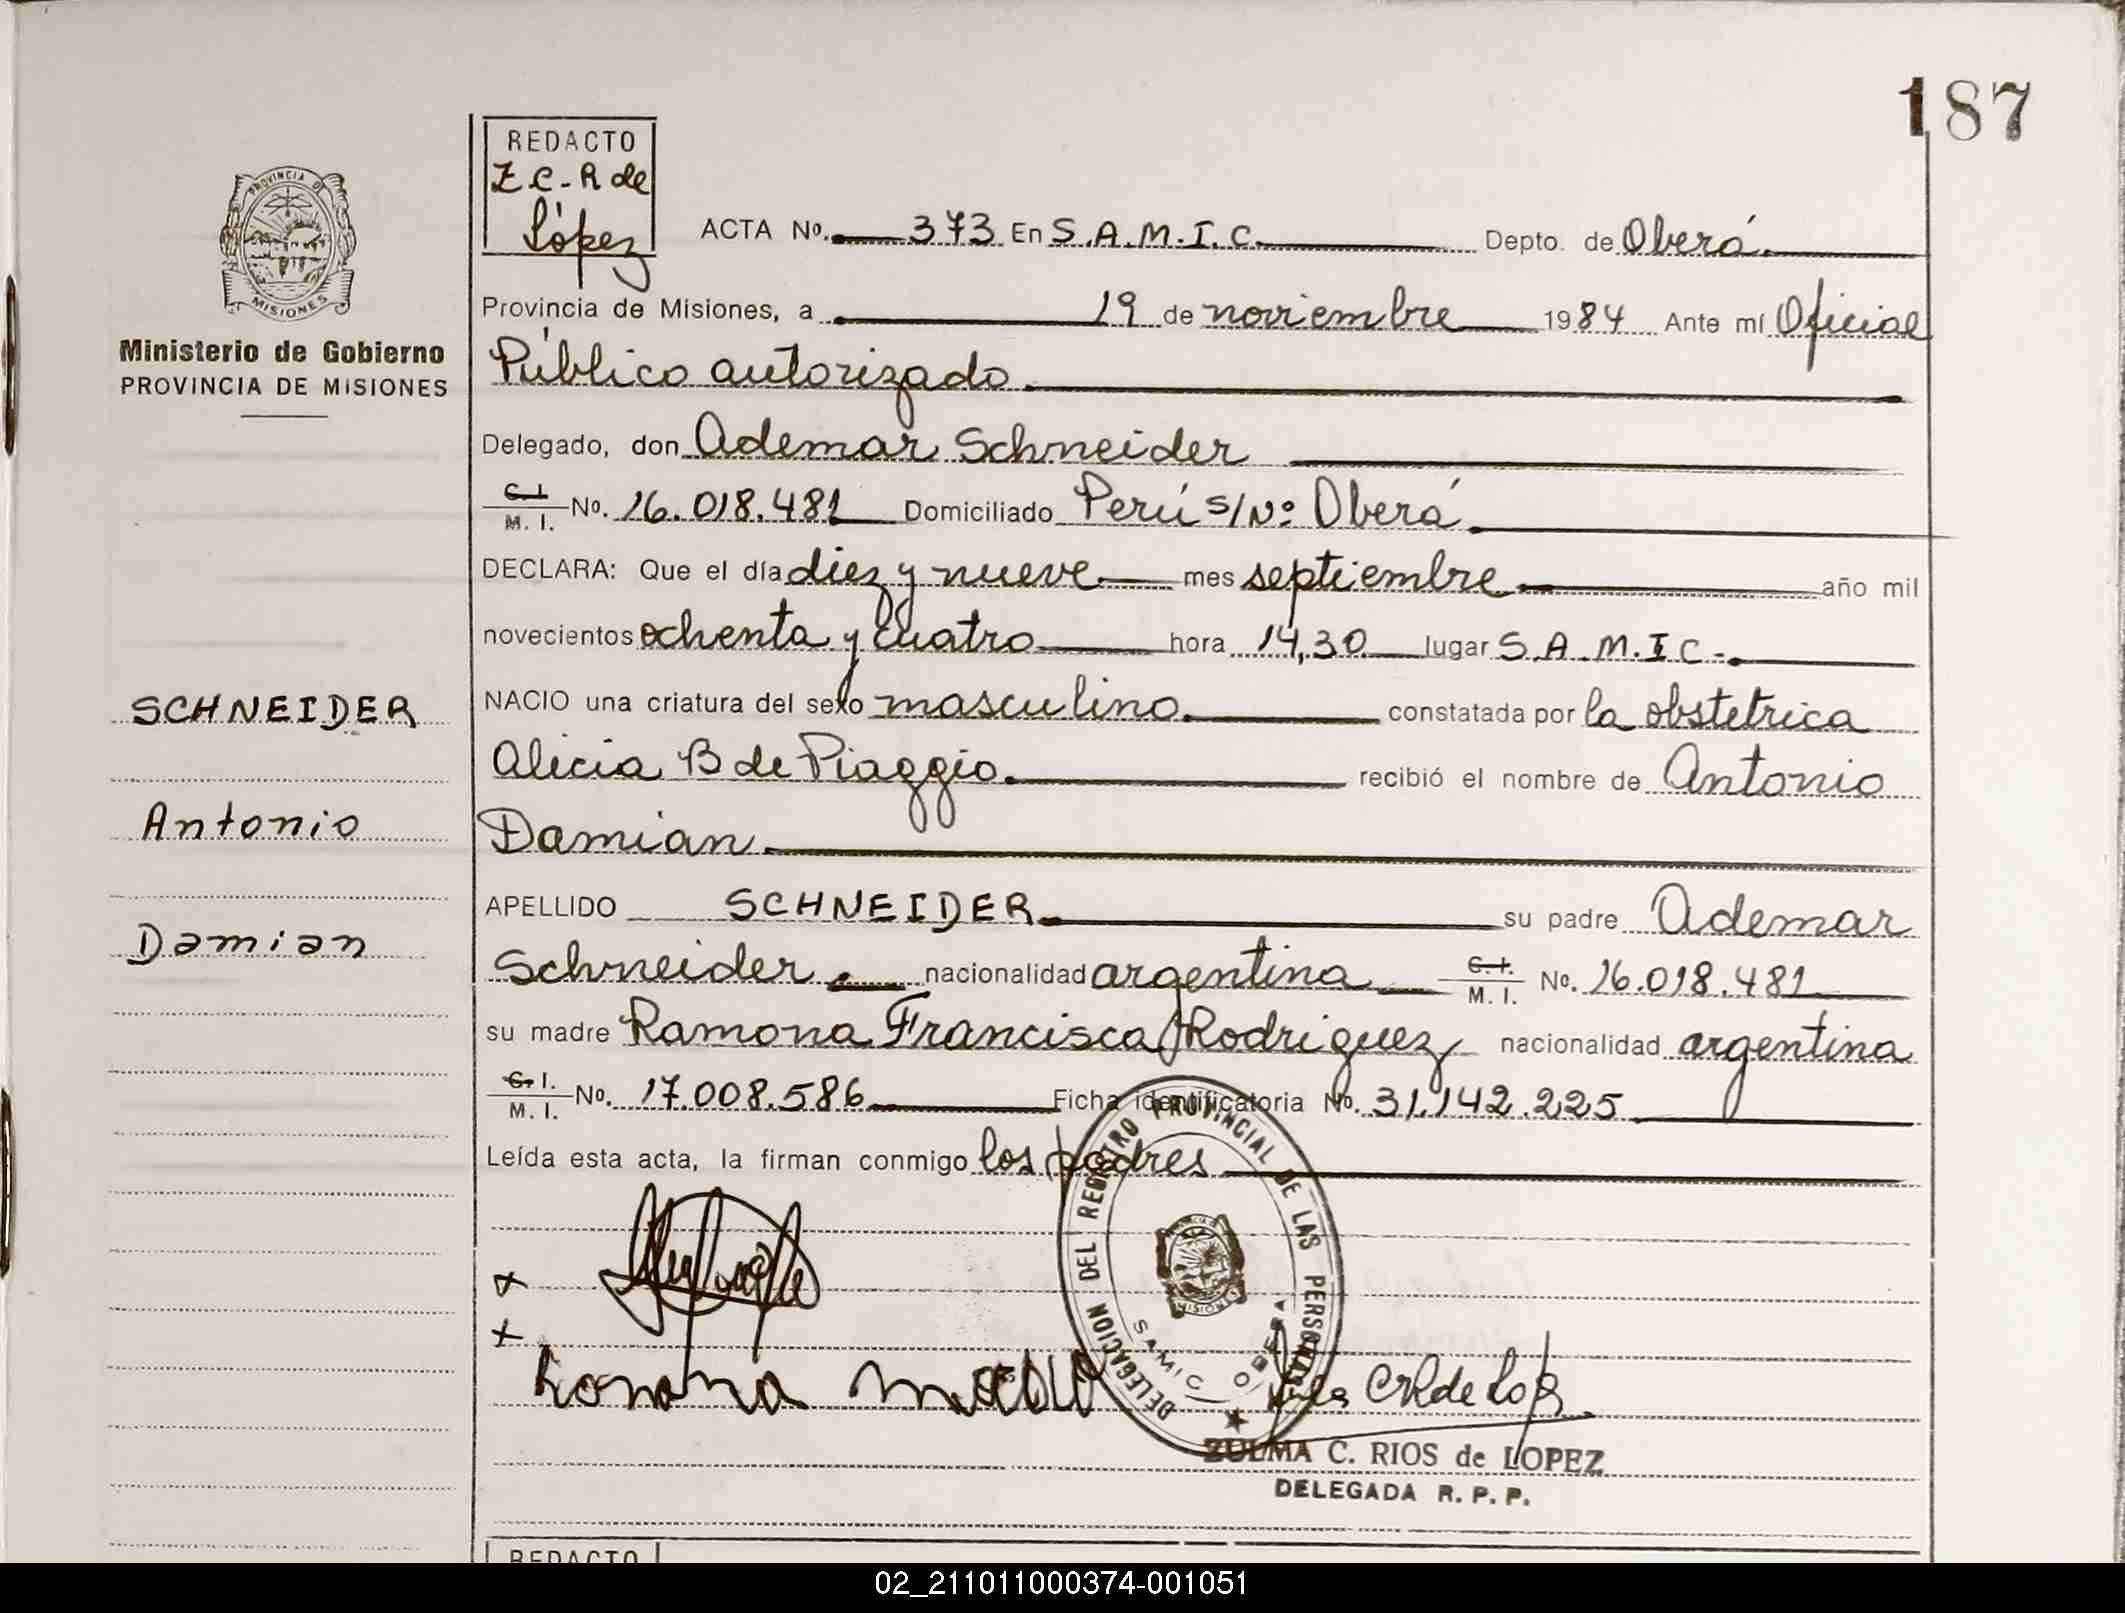 187
REDACTO
Z C - R de
López
PROVINCIA DE
MISIONES
Ministerio de Gobierno
PROVINCIA DE MISIONES
ACTA Nº. 373 En S.A.M.I.C. Depto. de Oberá
Provincia de Misiones, a 19 de noviembre 1984 Ante mí Oficial
Público autorizado
Delegado, don Ademar Schneider
C. I. / M. I. Nº. 16.018.481 Domiciliado Perú s/Nº Oberá
DECLARA: Que el día diez y nueve mes septiembre año mil
novecientos ochenta y cuatro hora 14,30 lugar S.A.M.I.C.-
NACIO una criatura del sexo masculino constatada por la obstetrica
Alicia B de Piaggio recibió el nombre de Antonio
Damian
APELLIDO SCHNEIDER su padre Ademar
Schneider nacionalidad argentina C. I. / M. I. No. 16.018.481
su madre Ramona Francisca Rodriguez nacionalidad argentina
C. I. / M. I. No. 17.008.586 Ficha identificatoria No. 31.142.225
Leída esta acta, la firman conmigo los padres
SCHNEIDER
Antonio
Damian
DELEGACION DEL REGISTRO PROVINCIAL DE LAS PERSONAS
MISIONES
SAMIC OBERA
ZULMA C. RIOS de LOPEZ
DELEGADA R. P. P.
REDACTO
02_211011000374-001051